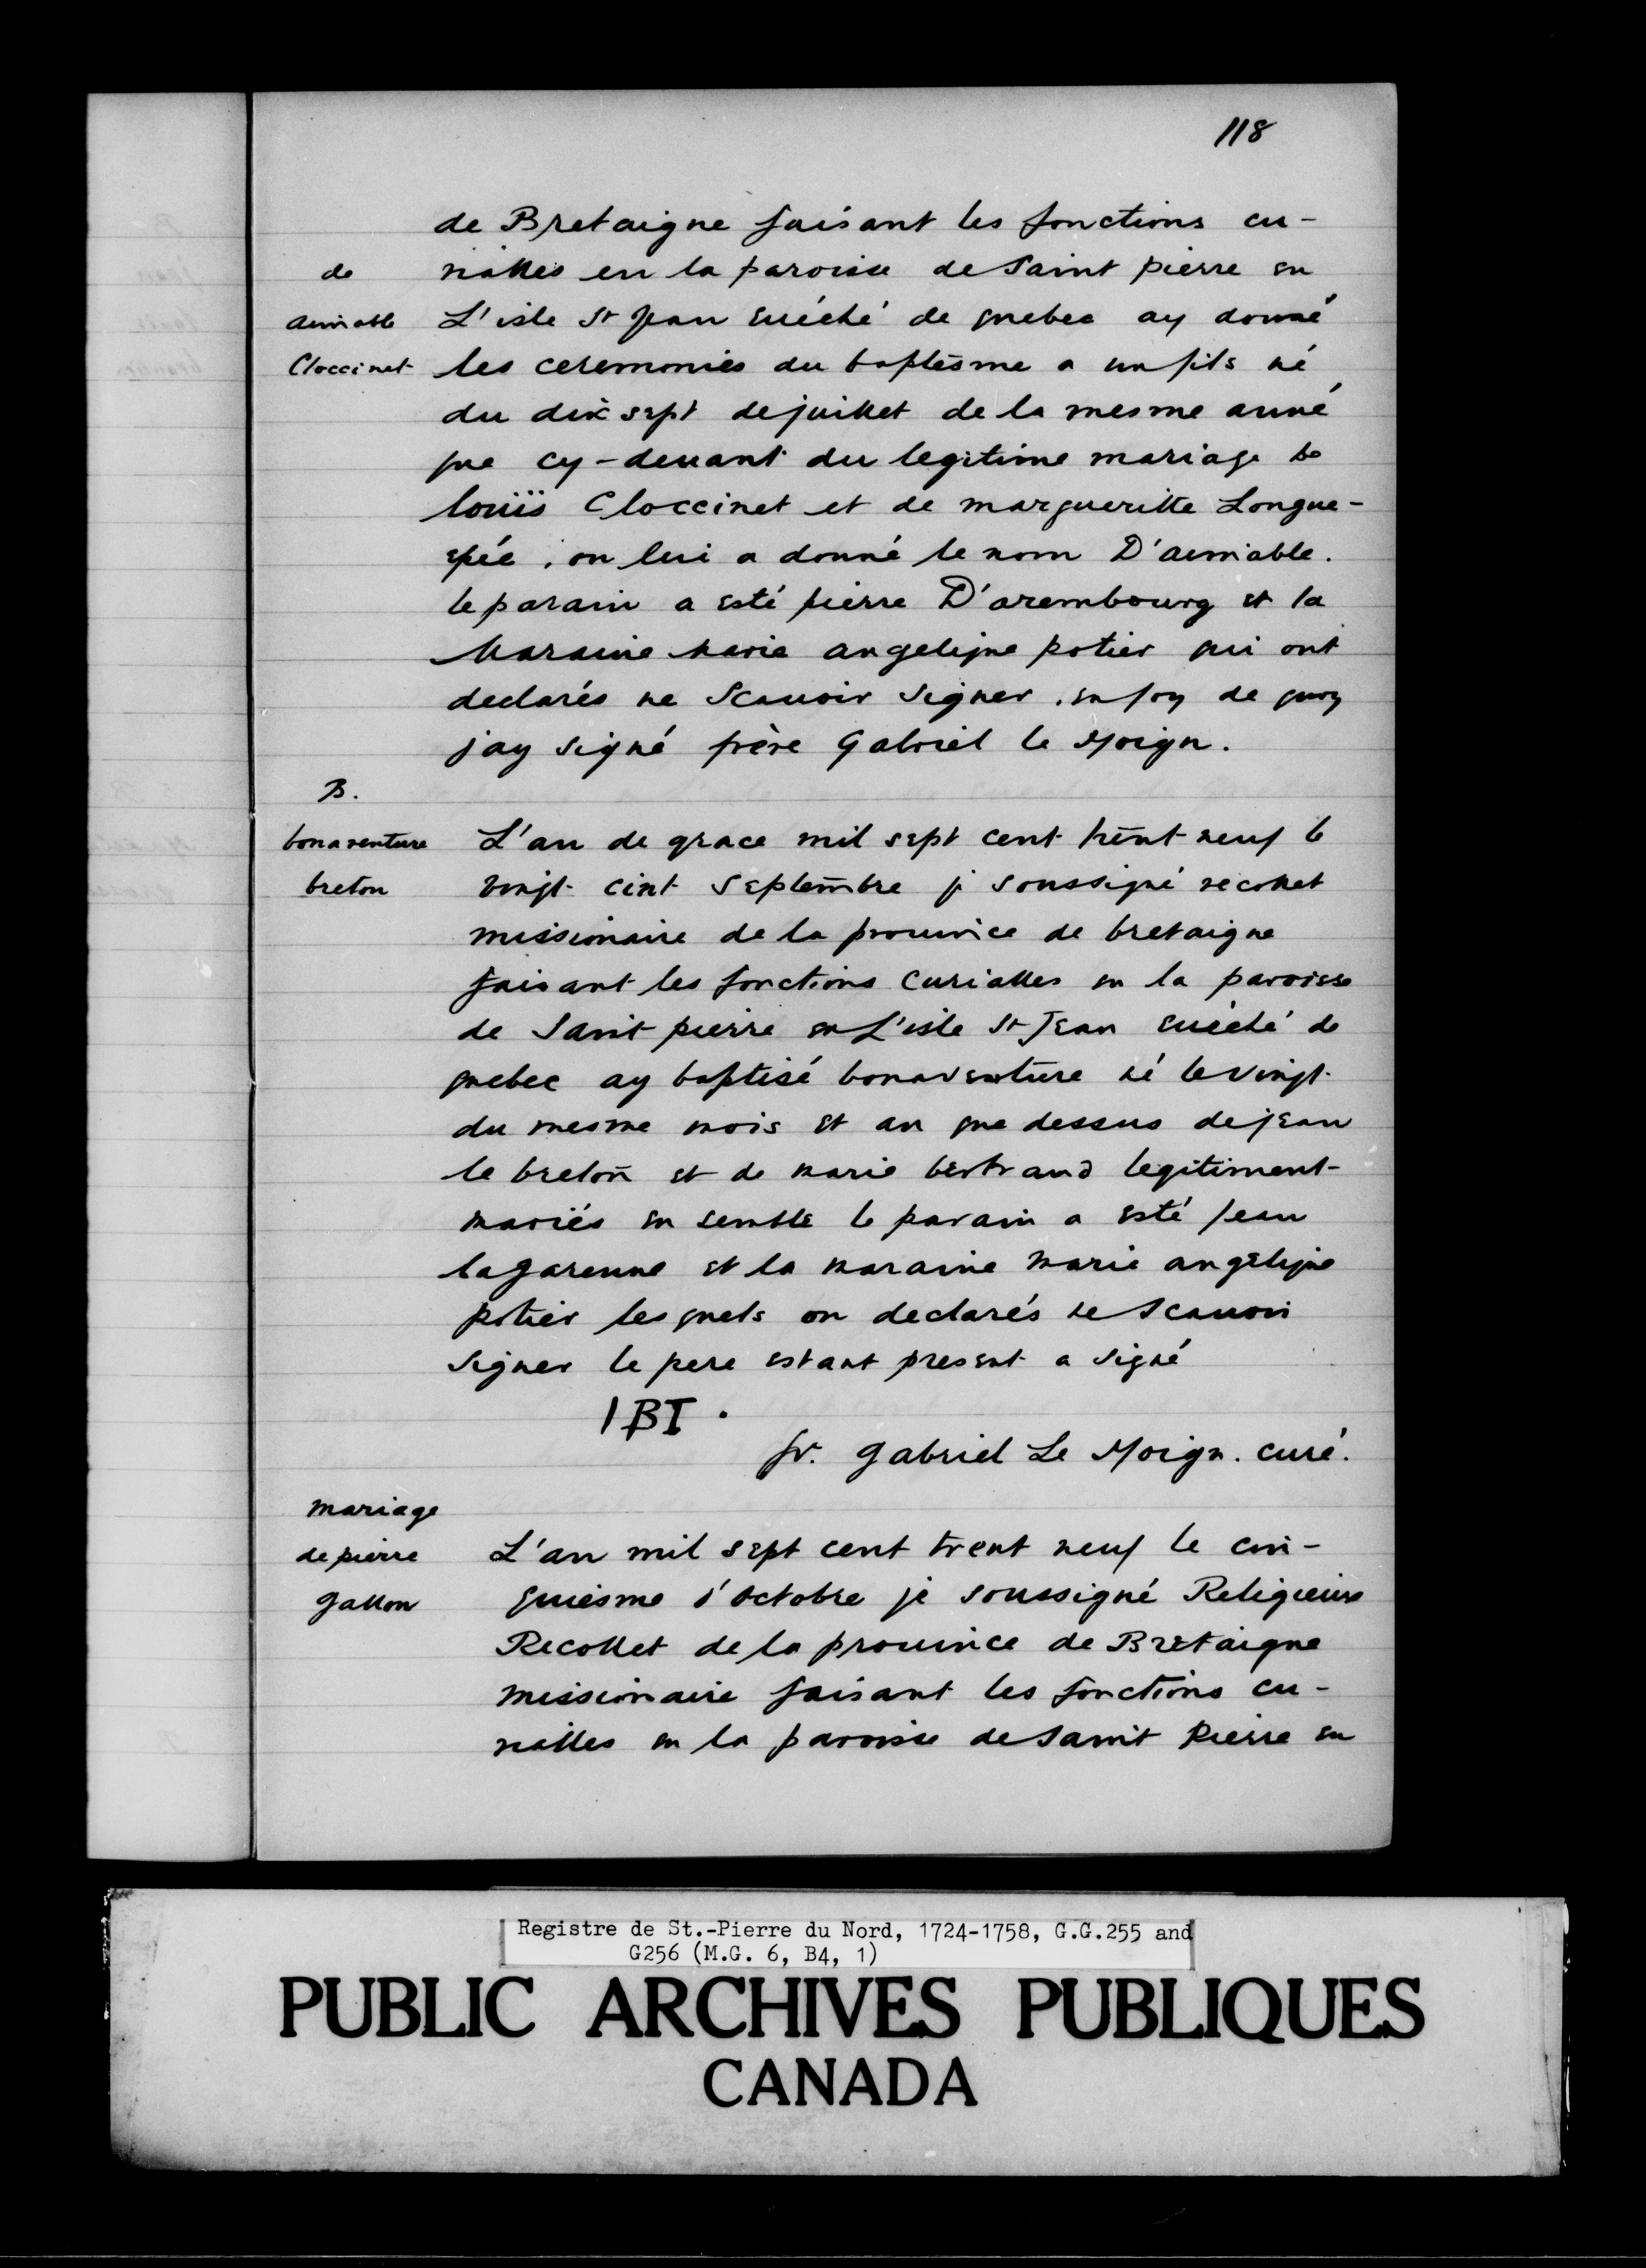 118
de Bretaigne faisant les fonctions cu-
de
rialles en la paroisse de Saint pierre en
aimable
L'isle St Jean euéché de quebec ay donné
Cloccinet
les ceremonies du baptesme a un fils né
du dix sept de juillet de la mesme anné
que cy-deuant du legitime mariage de
louïs Cloccinet et de margueritte Longue-
epée. on lui a donné le nom D'aimable.
le parain a esté pierre D'arembourg et la
Maraine Marie angelique potier qui ont
declarés ne Scauoir Signer. en foy de quoy
jay signé frère Gabriel le Moign.
B.
bonaventure
L'an de grace mil sept cent trent neuf le
breton
vingt cint Septembre je soussigné recollet
missionaire de la prouince de bretaigne
faisant les fonctions Curialles en la paroisse
de Saint pierre en L'isle St Jean euéché de
quebec ay baptisé bonaventure né le vingt
du mesme mois et an que dessus de jean
le breton et de marie bertrand legitiment
mariés en semble le parain a esté jean
lagarenne et la maraine marie angelique
potier les quels on declarés ne Scauoir
Signer le pere estant present a Signé
IBI.
fr. gabriel Le Moign. curé.
mariage
de pierre
L'an mil sept cent trent neuf le cin-
gallon
quiesme d'octobre je soussigné Religieux
Recollet de la prouince de Bretaigne
missionaire faisant les fonctions cu-
rialles en la paroisse de Saint Pierre en
Registre de St.-Pierre du Nord, 1724-1758, G.G.255 and
G256 (M.G. 6, B4, 1)
PUBLIC ARCHIVES PUBLIQUES
CANADA